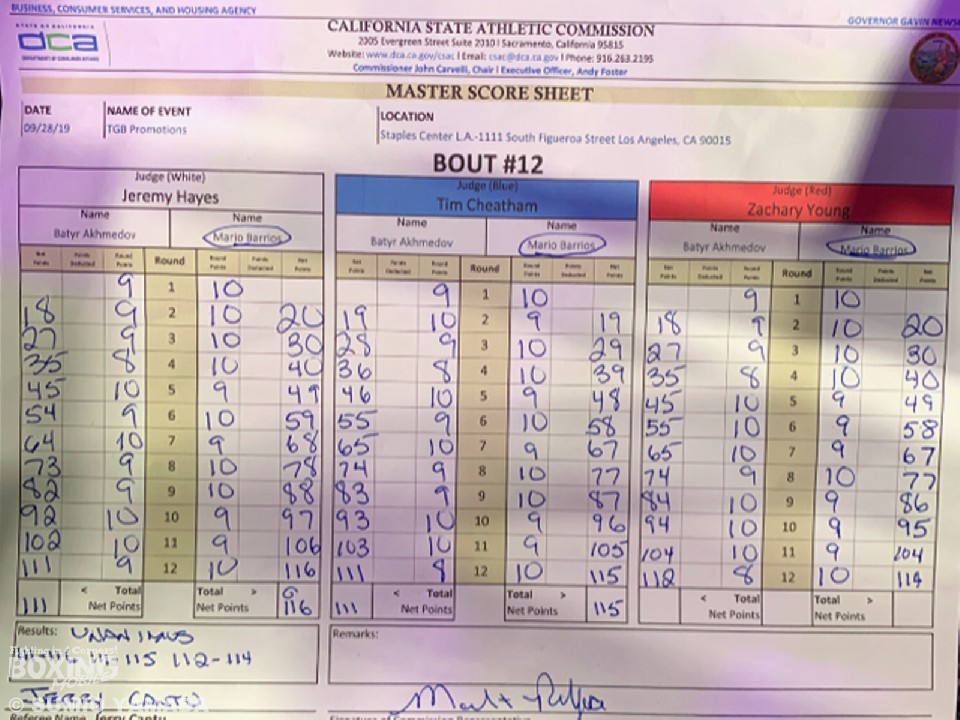 BUSINESS, CONSUMER SERVICES, AND HOUSING AGENCY
GOVERNOR GAVIN NEWS
STATE OF CALIFORNIA
dca
DEPARTMENT OF CONSUMER AFFAIRS
CALIFORNIA STATE ATHLETIC COMMISSION
2005 Evergreen Street Suite 2010 | Sacramento, California 95815
Website: www.dca.ca.gov/csac | Email: csac@dca.ca.gov | Phone: 916.263.2195
Commissioner John Carvelli, Chair | Executive Officer, Andy Foster
MASTER SCORE SHEET
DATE NAME OF EVENT LOCATION
09/28/19 TGB Promotions Staples Center L.A.-1111 South Figueroa Street Los Angeles, CA 90015
BOUT #12
Judge (White) Judge (Blue) Judge (Red)
Jeremy Hayes Tim Cheatham Zachary Young
Name Name Name Name Name Name
Batyr Akhmedov Mario Barrios Batyr Akhmedov Mario Barrios Batyr Akhmedov Mario Barrios
Net Points Points Deducted Round Points Round Round Points Points Deducted Net Points Net Points Points Deducted Round Points Round Round Points Points Deducted Net Points Net Points Points Deducted Round Points Round Round Points Points Deducted Net Points
9 1 10 9 1 10 9 1 10
18 9 2 10 20 19 10 2 9 19 18 9 2 10 20
27 9 3 10 30 28 9 3 10 29 27 9 3 10 30
35 8 4 10 40 36 8 4 10 39 35 8 4 10 40
45 10 5 9 49 46 10 5 9 48 45 10 5 9 49
54 9 6 10 59 55 9 6 10 58 55 10 6 9 58
64 10 7 9 68 65 10 7 9 67 65 10 7 9 67
73 9 8 10 78 74 9 8 10 77 74 9 8 10 77
82 9 9 10 88 83 9 9 10 87 84 10 9 9 86
92 10 10 9 97 93 10 10 9 96 94 10 10 9 95
102 10 11 9 106 103 10 11 9 105 104 10 11 9 104
111 9 12 10 116 111 8 12 10 115 112 8 12 10 114
111 < Total Net Points Total > Net Points 116 111 < Total Net Points Total > Net Points 115 < Total Net Points Total > Net Points
Results: UNANIMUS Remarks:
BOXING
115 112-114
JERRY CANTU
Referee Name Jerry Cantu Signature of Commission Representative